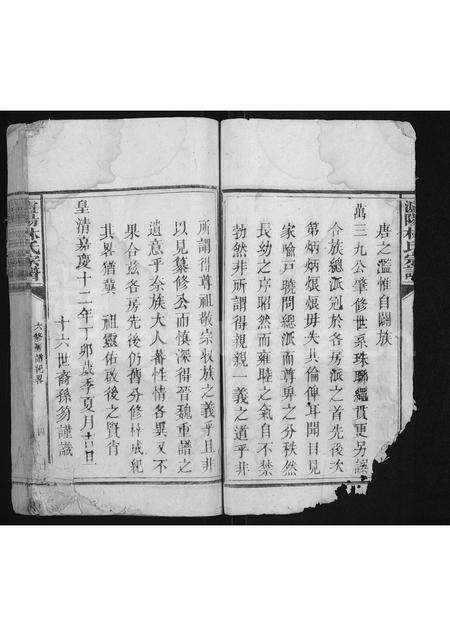 唐之濫惟自闢族
萬三九公肇修世系珠聯繩貫更另譔
合族總派冠於各房派之首先後次
第炳炳烺烺毋失其倫俾耳聞目見
家喻戶曉問總派而尊卑之分秩然
長幼之序昭然而雍睦之氣自不禁
勃然非所謂得親親一義之道乎非
所謂得尊祖敬宗收族之義乎且非
以見纂修公而慎深得晉魏重譜之
遺意乎奈族大人蕃性情各異又不
果合茲各房先後仍舊分修梓成紀
其畧猶冀 祖靈佑啟後之賢肖
皇清嘉慶十二年丁卯歲季夏月吉日
十六世裔孫豹謹識
林氏宗譜
六修